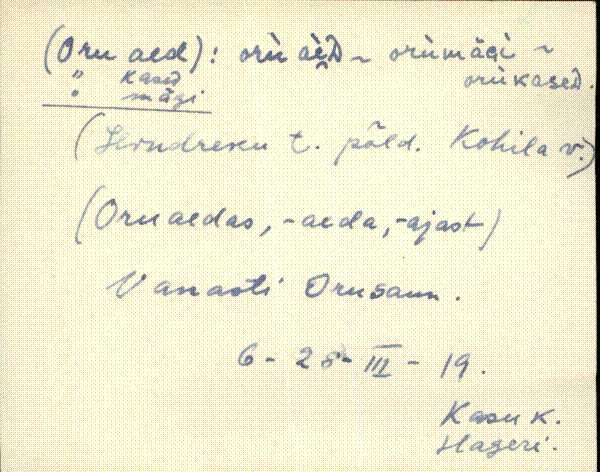 (Oru aed): oru aeD ~ orumägi ~
" kased orukaseD.
" mägi
(Hindreku t. põld. Kohila v.)
(Oruaedas, -aeda, -ajast)
Vanasti Orusaun.
6 - 28 - III - 19.
Kasu k.
Hageri.